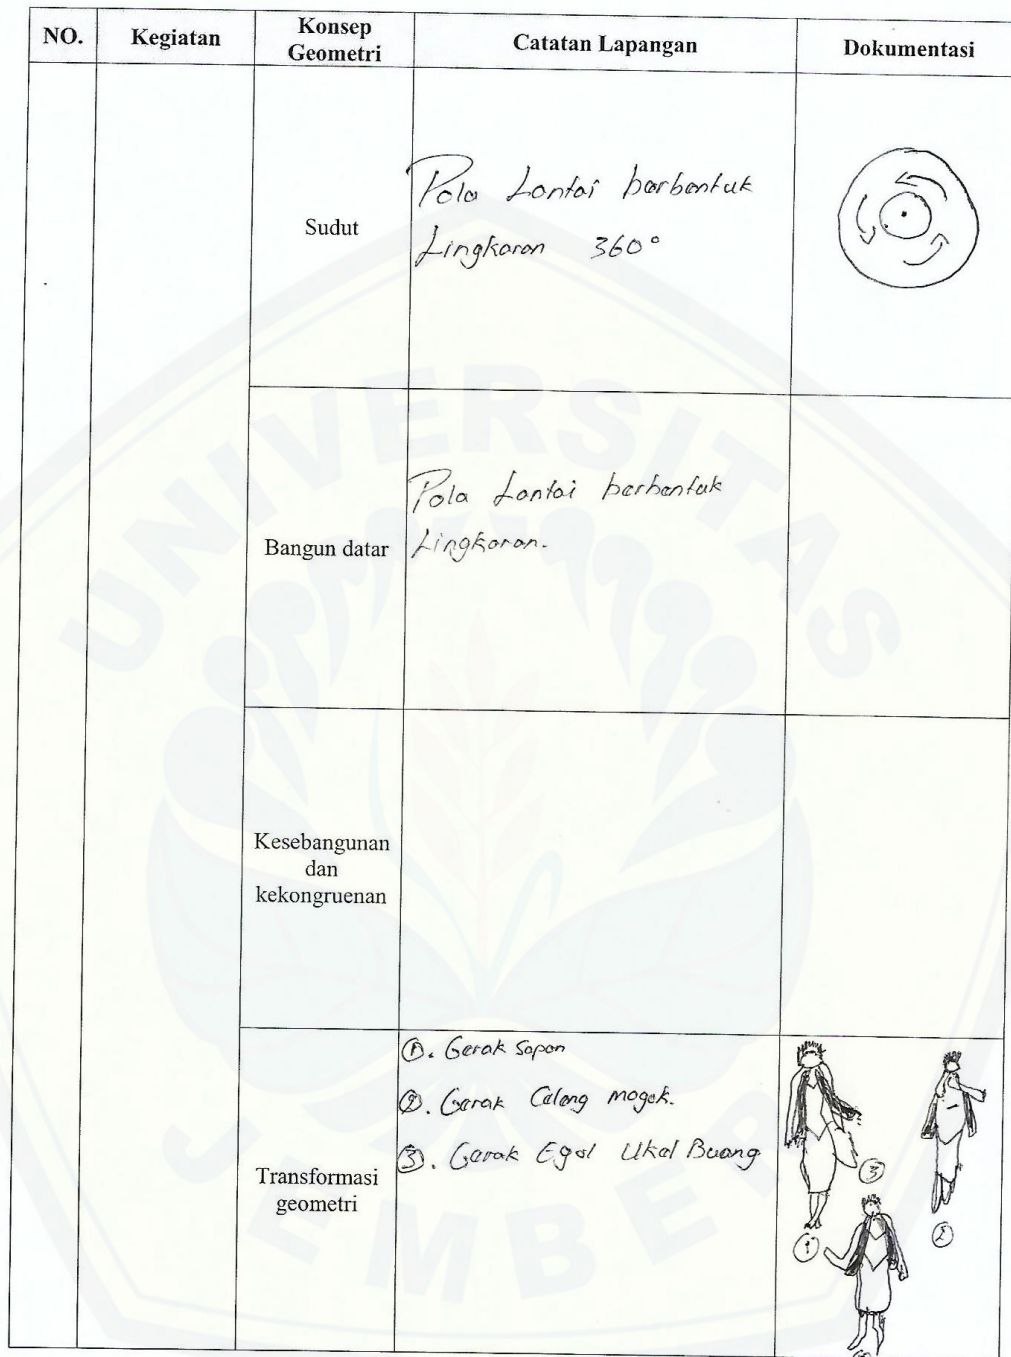 NO.
Kegiatan
Konsep Geometri
Catatan Lapangan
Dokumentasi
Sudut
Pola Lantai berbentuk
Lingkaran 360°
Bangun datar
Pola Lantai berbentuk
Lingkaran.
Kesebangunan
dan
kekongruenan
Transformasi
geometri
①. Gerak Sapon
②. Gerak Celeng mogok.
③. Gerak Egol Ukel Buang
③
①
②
UNIVERSITAS
JEMBER